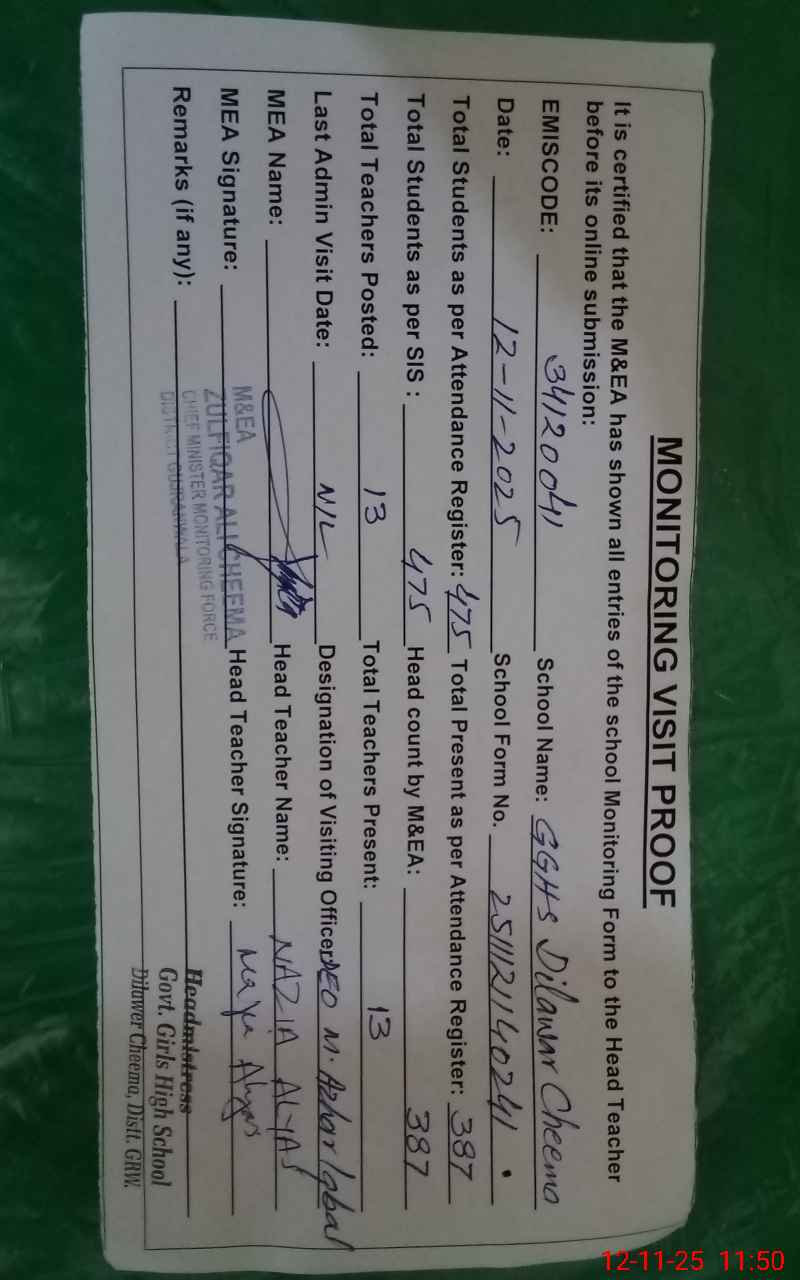 MONITORING VISIT PROOF
It is certified that the M&EA has shown all entries of the school Monitoring Form to the Head Teacher
before its online submission:
EMISCODE: 34120041 School Name: GGHS Dilawar Cheema
Date: 12-11-2025 School Form No. 2511121140241
Total Students as per Attendance Register: 475 Total Present as per Attendance Register: 387
Total Students as per SIS : 475 Head count by M&EA: 387
Total Teachers Posted: 13 Total Teachers Present: 13
Last Admin Visit Date: NIL Designation of Visiting Officer: DEO M. Azhar Iqbal
MEA Name: Head Teacher Name: NAZIA ALYAS
MEA Signature: Head Teacher Signature:
Remarks (if any):
M&EA
ZULFIQAR ALI CHEEMA
CHIEF MINISTER MONITORING FORCE
DISTRICT GUJRANWALA
Headmistress
Govt. Girls High School
Dilawer Cheema, Distt. GRW.
12-11-25 11:50